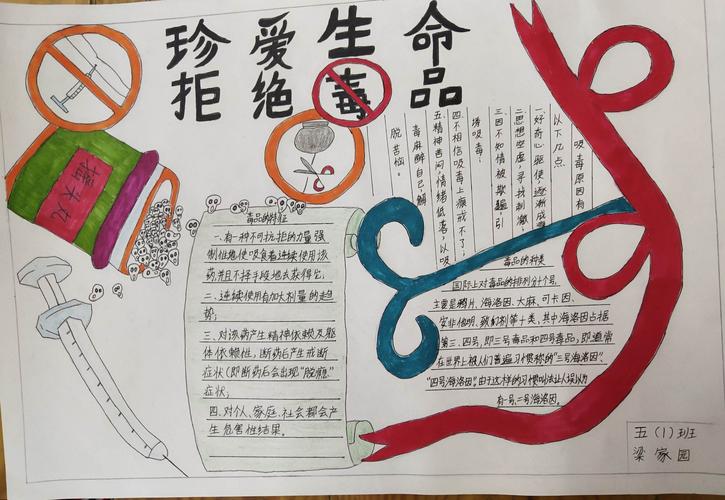 珍爱生命
拒绝毒品
摇头丸
吸毒原因有
以下几点
一.好奇心驱使逐渐成
二.思想空虚,寻找刺激;
三.因不知情被欺骗,引
诱吸毒;
四.不相信吸毒上瘾戒不了;
五.精神苦闷,情绪低落,以吸
毒麻醉自己,解
脱苦恼。
毒品的特征
一、有一种不可抗拒的力量强
制性地使吸食者连续使用该
药,并且不择手段地去获得它;
二、连续使用有加大剂量的趋
势;
三、对该药产生精神依赖及躯
体依赖性,断药后产生戒断
症状(即断药后会出现"脱瘾"
症状;
四、对个人、家庭、社会都会产
生危害性结果。
毒品的种类
国际上对毒品的排列分十个号,
主要是鸦片、海洛因、大麻、可卡因、
安非他明、致幻剂等十类,其中海洛因占据
第三、四号,即三号毒品和四号毒品,即通常
在世界上被人们普遍习惯称的"三号海洛因"、
"四号海洛因",由于这样的习惯叫法让人误以为
有一号、二号海洛因。
五(1)班
梁家园